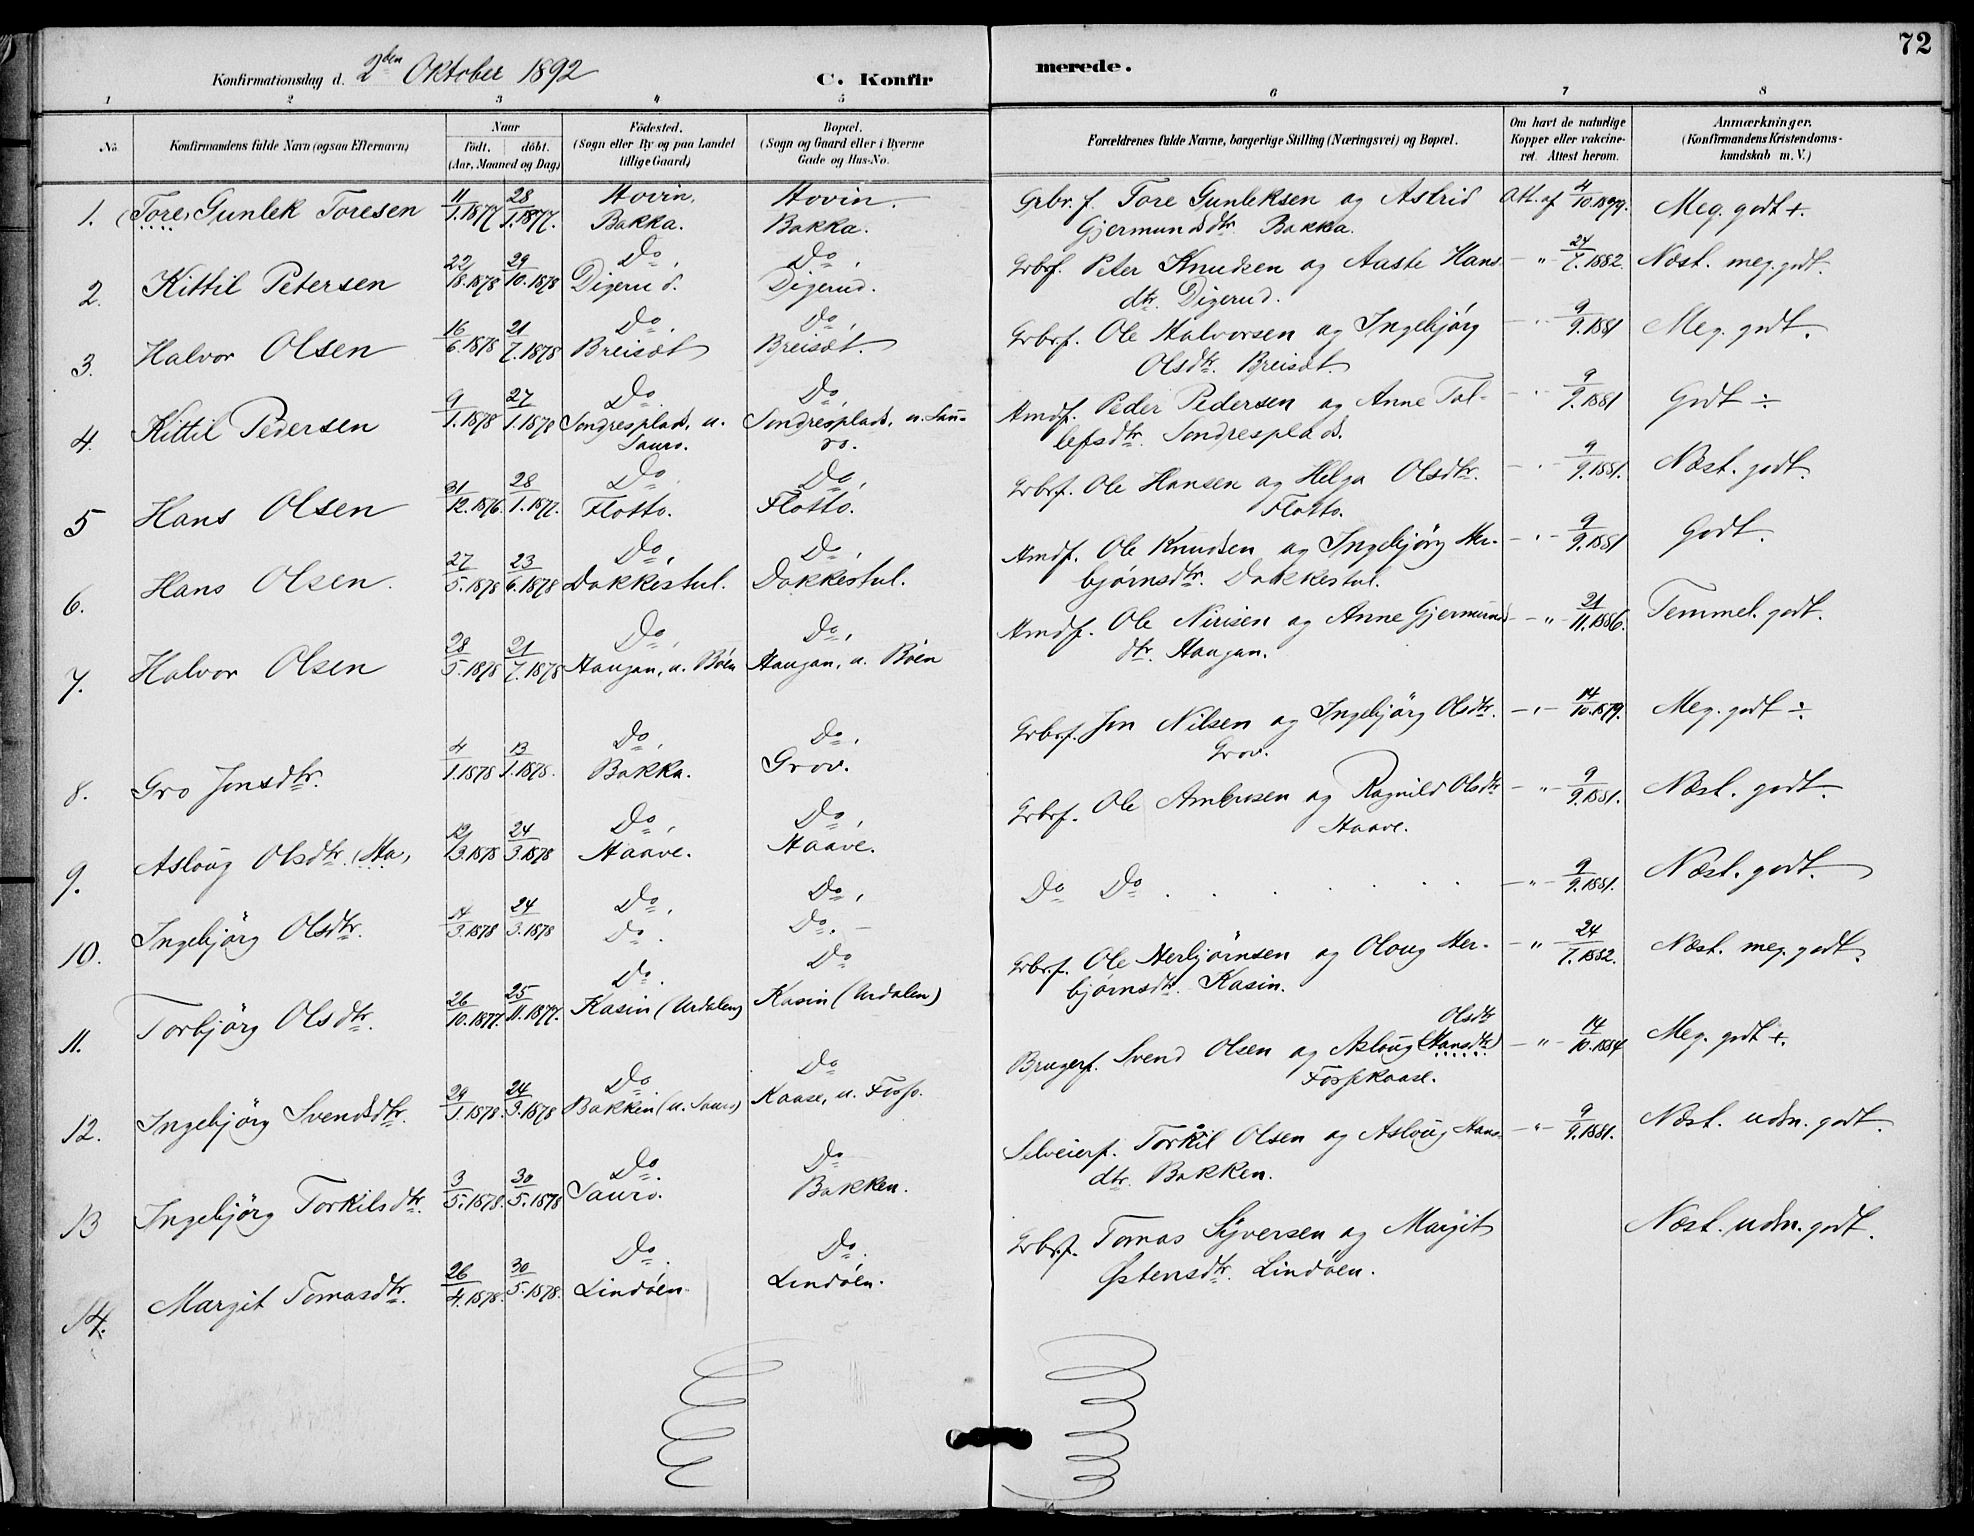 72
Konfirmationsdag d. 2den Oktober 1892 C. Konfirmerede.
1 2 3 4 5 6 7 8
No. Konfirmandens fulde Navn (ogsaa Efternavn) Naar födt. döbt. (Aar, Maaned og Dag) Födested. (Sogn eller By og paa Landet tillige Gaard) Bopæl. (Sogn og Gaard eller i Byerne Gade og Hus-No. Forældrenes fulde Navne, borgerlige Stilling (Næringsvei) og Bopæl. Om havt de naturlige Kopper eller vakcineret. Attest herom. Anmærkninger. (Konfirmandens Kristendomskundskab m. V.)
1. (Tore) Gunlek Toresen 11/1.1877 28/1.1877. Hovin, Bakka. Hovin. Bakka. Grbr.f. Tore Gunleksen og Astrid Gjermundsdtr. Bakka. Att. af 4/10.1879. Meg. godt +.
2. Kittil Petersen 22/8.1878 29/10.1878 Do, Digerud. Do, Digerud. Grbrf. Peter Knudsen og Aaste Hansdtr. Digerud. — " — 24/7.1882. Næst. meg. godt.
3. Halvor Olsen 16/6.1878 21/7.1878 Do, Breisæt Do, Breisæt. Grbrf. Ole Halvorsen og Ingebjörg Olsdtr. Breisæt — " — 9/9.1881 Meg. godt.
4. Kittil Pedersen 9/1.1878 27/1.1878 Do. Sondresplads, u. Sauro. Do, Sondresplads, u. Sauro. Hmdf. Peder Pedersen og Anne Tollefsdtr. Sondresplads. — " — 9/9.1881 Godt ÷
5 Hans Olsen 31/12.1876. 28/1.1877. Do, Flotto. Do, Flotto. Grbrf. Ole Hansen og Helga Olsdtr. Flotto. — " — 9/9.1881. Næst. godt.
6. Hans Olsen. 27/5.1878 23/6.1878 Do, Dakkestul. Do, Dakkestul. Hmdf. Ole Knudsen og Ingebjörg Herbjörnsdtr. Dakkestul. — " — 9/9.1881 Godt.
7. Halvor Olsen 28/5.1878 21/7.1878 Do, Haugan, u. Böen Do, Haugan, u. Böen Hmdf. Ole Nirisen og Anne Gjermundsdtr. Haugan. — " — 21/11.1886. Temmel. godt.
8. Gro Jonsdtr. 4/1.1878 13/1.1878. Do, Bakka. Do, Grov. Grbrf. Jon Nilsen og Ingebjörg Olsdtr. Grov. — " — 14/10.1879. Meg. godt ÷
9. Aslöug Olsdtr. (Ha) 12/3.1878 24/3.1878 Do, Haave. Do, Haave. Grbrf. Ole Ambrosen og Ragnild Olsdtr Haave. — " — 9/9.1881. Næst. godt.
10. Ingebjörg Olsdtr. 14/3.1878 24/3.1878 Do, Do. Do, Do. — Do Do . . . . . . — " — 9/9.1881. Næst. godt.
11. Torbjörg Olsdtr. 26/10.1877. 25/11.1877. Do. Kasin (Urdalen) Do Kasin (Urdalen) Grbrf. Ole Herbjörnsen og Oloug Herbjörnsdtr. Kasin. — " — 24/7.1882. Næst. meg. godt.
12. Ingebjörg Svendsdtr. 29/1.1878. 24/3.1878 Do Bakken (u. Sauro) Do Kaase, u. Fosso. Brugerf. Svend Olsen og Aslöug Olsdtr (Hansdtr) Fossekaase. — " — 14/10.1884 Meg. godt +.
13 Ingebjörg Torkilsdtr. 3/5.1878. 30/5.1878 Do. Sauro. Do Bakken. Selveierf. Torkil Olsen og Aslöug Hansdtr. Bakken. — " — 9/9.1881. Næst. udm. godt.
14. Margit Tomasdtr. 26/4.1878. 30/5.1878. Do. Lindöen. Do. Lindöen. Grbr.f. Tomas Syversen og Margit Östensdtr. Lindöen. Næst. udm. godt.